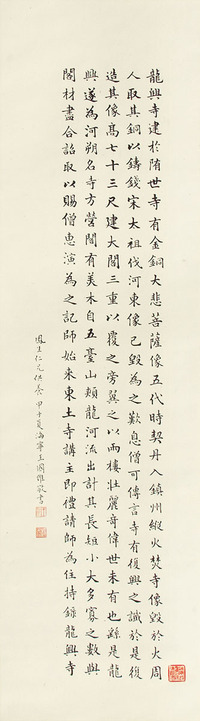 龍興寺建於隋世寺有金銅大悲菩薩像五代時契丹入鎮州縱火焚寺像毀於火周
人取其銅以鑄錢宋太祖伐河東像已毀為之歎息僧可傳言寺有復興之讖於是復
造其像高七十三尺建大閣三重以覆之旁翼之以兩樓壯麗奇偉世未有也繇是龍
興遂為河朔名寺方營閣有美木自五臺山頰龍河流出計其長短小大多寡之數與
閣材盡合詔取以賜僧惠演為之記師始來東土寺講主即禮請師為住持錄龍興寺
鳳生仁兄供養 甲子夏海寧王國維敬書